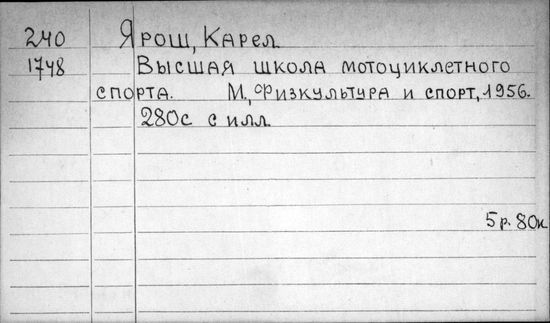 240 Ярош, Карел
1748 Высшая школа мотоциклетного
спорта. М, Физкультура и спорт, 1956.
280с с илл
5р. 80к